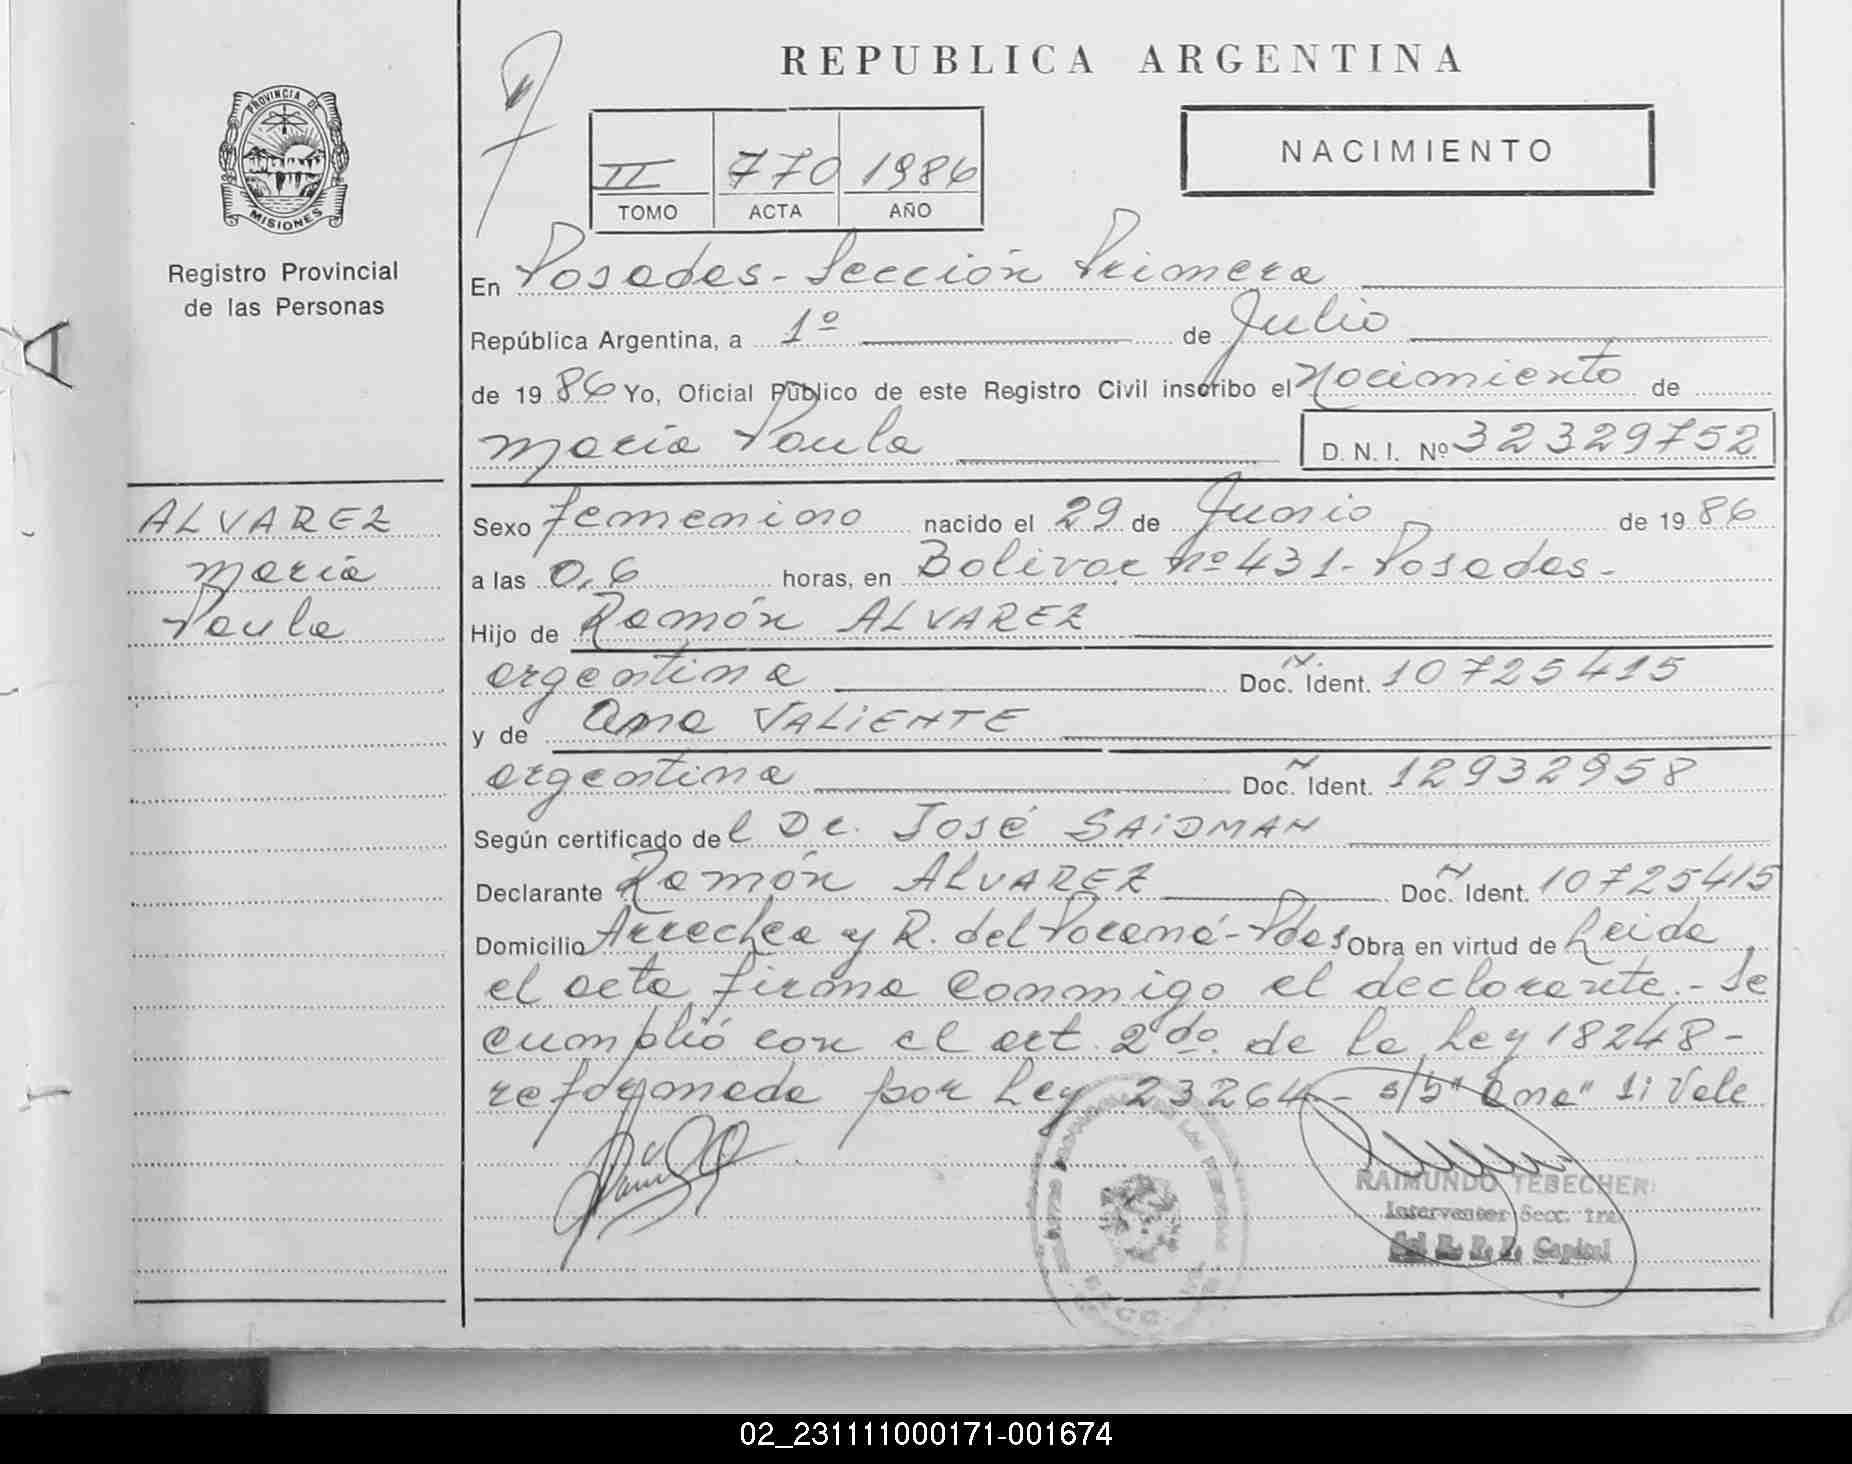 REPUBLICA ARGENTINA
PROVINCIA DE
MISIONES
Registro Provincial
de las Personas
II 770 1986
TOMO ACTA AÑO
NACIMIENTO
En Posadas - Sección Primera
República Argentina, a 1º de Julio
de 1986 Yo, Oficial Público de este Registro Civil inscribo el Nacimiento de
María Paula D. N. I. Nº 32329752
ALVAREZ
María
Paula
Sexo femenino nacido el 29 de Junio de 1986
a las 0,6 horas, en Bolivar nº 431 - Posadas -
Hijo de Ramón ALVAREZ
argentina Doc. Ident. 10725415
y de Ana VALIENTE
argentina Doc. Ident. 12932958
Según certificado del Dr. José SAIDMAN
Declarante Ramón ALVAREZ Doc. Ident. 10725415
Domicilio Arrechea y R. del Paraná - Pdas Obra en virtud de Leida
el acta firma conmigo el declarante. - Se
cumplió con el art. 2do. de la Ley 18248 -
reformada por Ley 23264 - s/b "Ana" 1i Vale
RAIMUNDO TEBECHERI
Interventor Secc. 1ra
del R. P. P. Capital
02_231111000171-001674